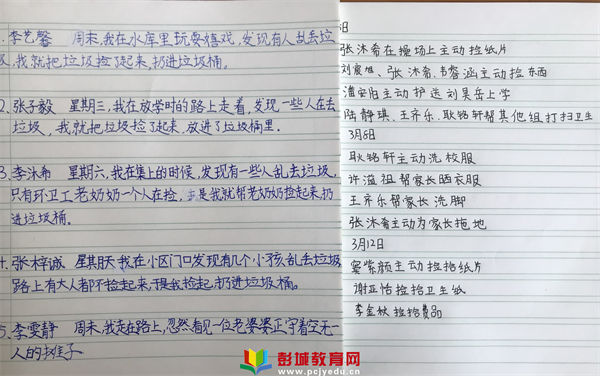 1.李艺馨 周末,我在水库里玩耍嬉戏,发现有人乱丢垃
圾,我就把垃圾捡了起来,扔进垃圾桶。
2.张子毅 星期三,我在放学时的路上走着,发现一些人在丢
垃圾,我就把垃圾捡了起来,放进了垃圾桶里.
3.李沐希 星期六,我在集上的时候,发现有一些人乱丢垃圾,
只有环卫工老奶奶一个人在捡,于是我就帮老奶奶捡起来,扔
进垃圾桶。
4.张梓诚 星期天我在小区门口发现有几个小孩乱丢垃圾
路上有大人都不捡起来,于是我捡起,扔进垃圾桶。
5.李雯静 周末,我走在路上,忽然看见一位老婆婆正守着空无一
人的摊子
日
张沐希在操场上主动捡纸片
刘宸旭、张沐希、韦睿涵主动捡东西
潘安泊主动护送刘昊岳上学
陆静琪、王齐乐、耿铭轩帮其他组打扫卫生
3月6日
耿铭轩主动洗校服
许溢祖帮家长晒衣服
王齐乐帮家长洗脚
张沐希主动为家长拖地
3月12日
窦紫颜主动捡拾纸片
谢亚怡捡拾卫生纸
李金秋捡拾费品
彭城教育网
www.pcjyedu.cn